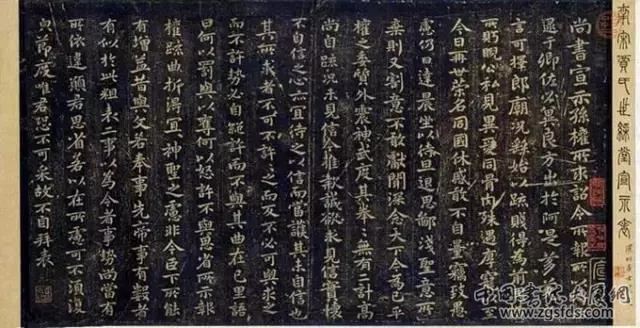 南宋賈氏世綵堂宣示表
尚書宣示孫權所求詔令所報所以博示
逮于卿佐必冀良方出於阿是芻蕘之
言可擇郎廟況繇始以疏賤得為前恩橫
所盱睨公私見異愛同骨肉殊遇厚寵以至
今日再世榮名同國休慼敢不自量竊致愚
慮仍日達晨坐以待旦退思鄙淺聖意所
棄則又割意不敢獻聞深念天下今為已平
權之委質外震神武度其拳拳無有二計高
尚自疏況未見信今推款誠欲求見信實懷
不自信之心亦宜待之以信而當護其未自信也
其所求者不可不許許之而反不必可與求之
而不許勢必自絕許而不與其曲在己里語
曰何以罰與以奪何以怒許不與思省所示報
權疏曲折得宜宜神聖之慮非今臣下所能
有增益昔與文若奉事先帝事有數者
有似於此粗表二事以為今者事勢尚當有
所依違願君思省若以在所慮可不須復
貌節度唯君恐不可采故不自拜表
中国书法展网
www.zgsfds.com